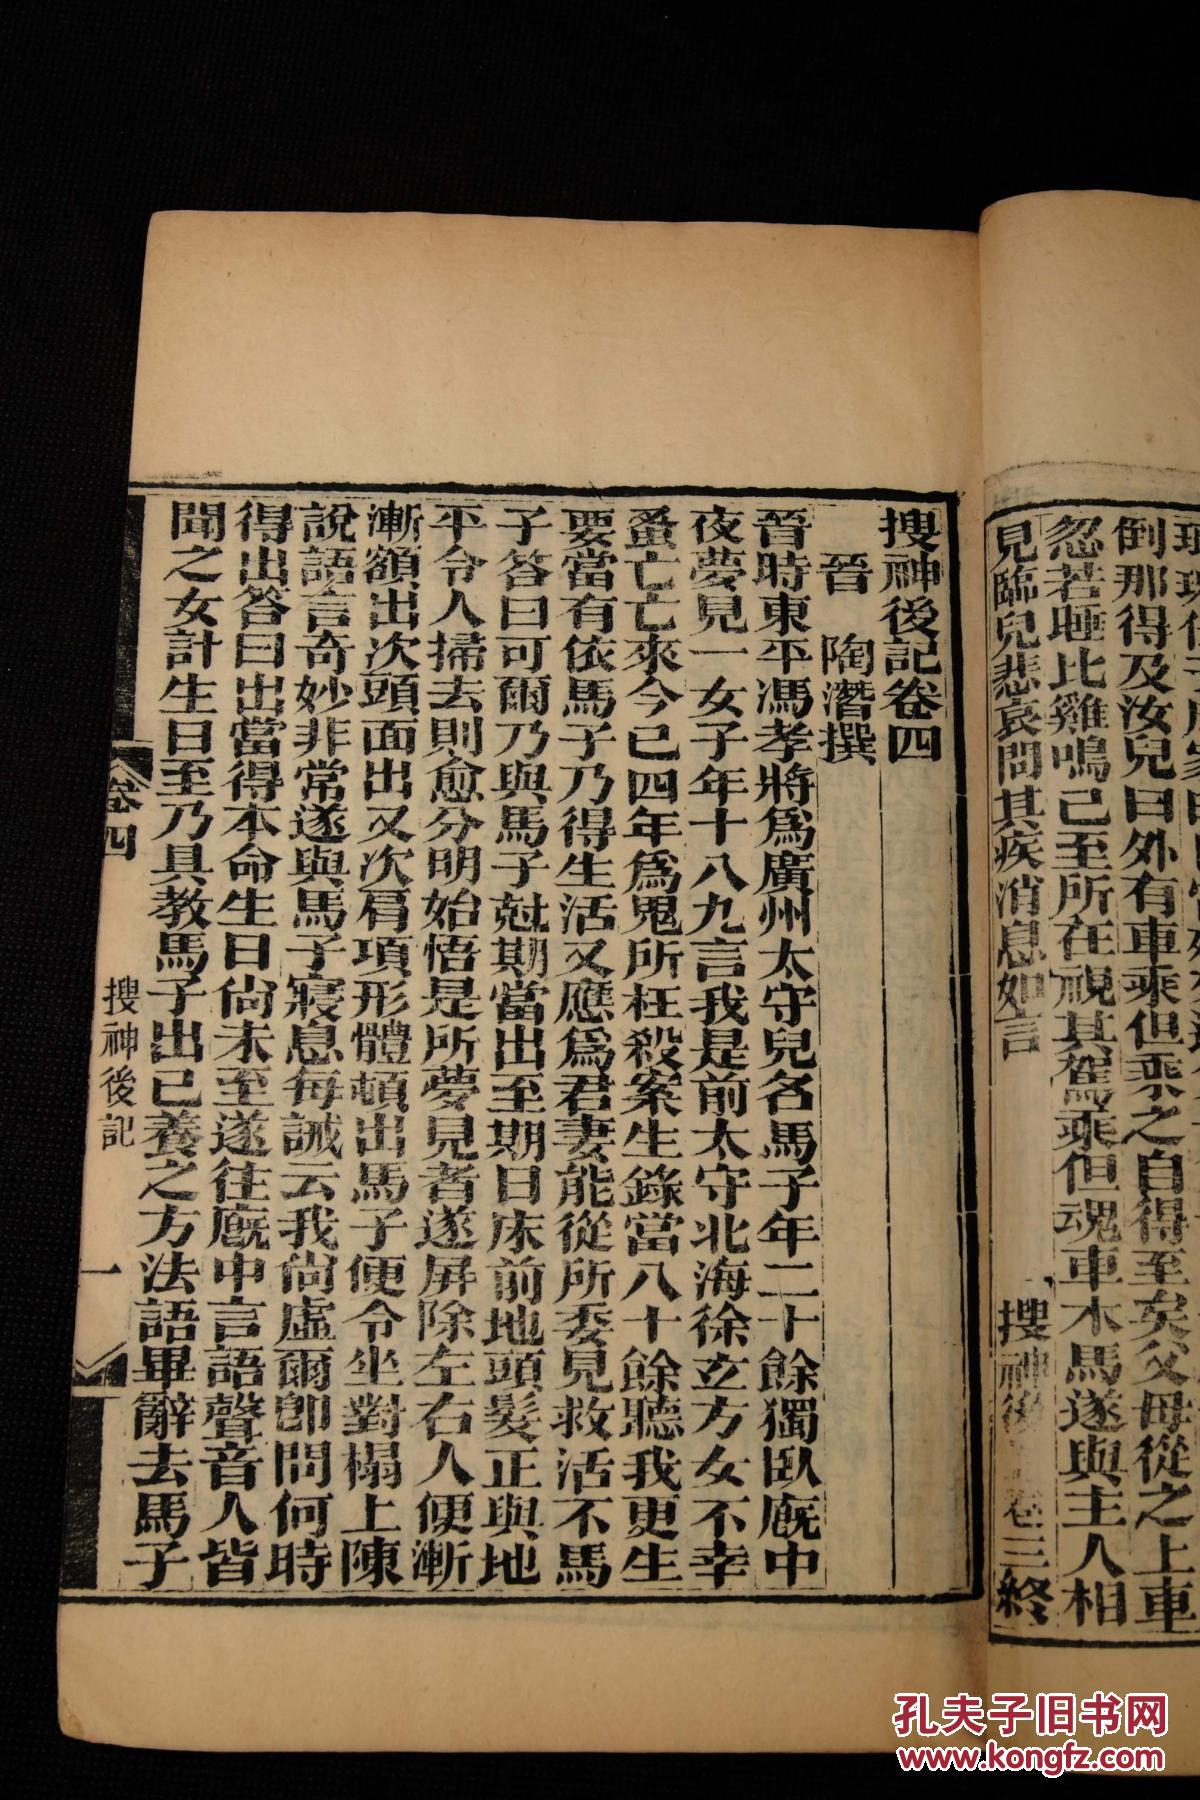 倒那得及汝兒曰外有車乘但乘之自得至矣父母從之上車
忽若睡比雞鳴已至所在視其駕乘但魂車木馬遂與主人相
見臨兒悲哀問其疾消息如言
搜神後 卷三終
搜神後記卷四
晉 陶潛撰
晉時東平馮孝將爲廣州太守兒名馬子年二十餘獨臥廐中
夜夢見一女子年十八九言我是前太守北海徐立方女不幸
蚤亡亡來今已四年爲鬼所枉殺案生錄當八十餘聽我更生
要當有依馬子乃得生活又應爲君妻能從所委見救活不馬
子答曰可爾乃與馬子尅期當出至期日床前地頭髮正與地
平令人掃去則愈分明始悟是所夢見者遂屏除左右人便漸
漸額出次頭面出又次肩項形體頓出馬子便令坐對榻上陳
說語言奇妙非常遂與馬子寢息每誡云我尙虛爾卽問何時
得出答曰出當得本命生日尙未至遂往廐中言語聲音人皆
聞之女計生日至乃具教馬子出己養之方法語畢辭去馬子
卷四
搜神後記
一
孔夫子旧书网
www.kongfz.com